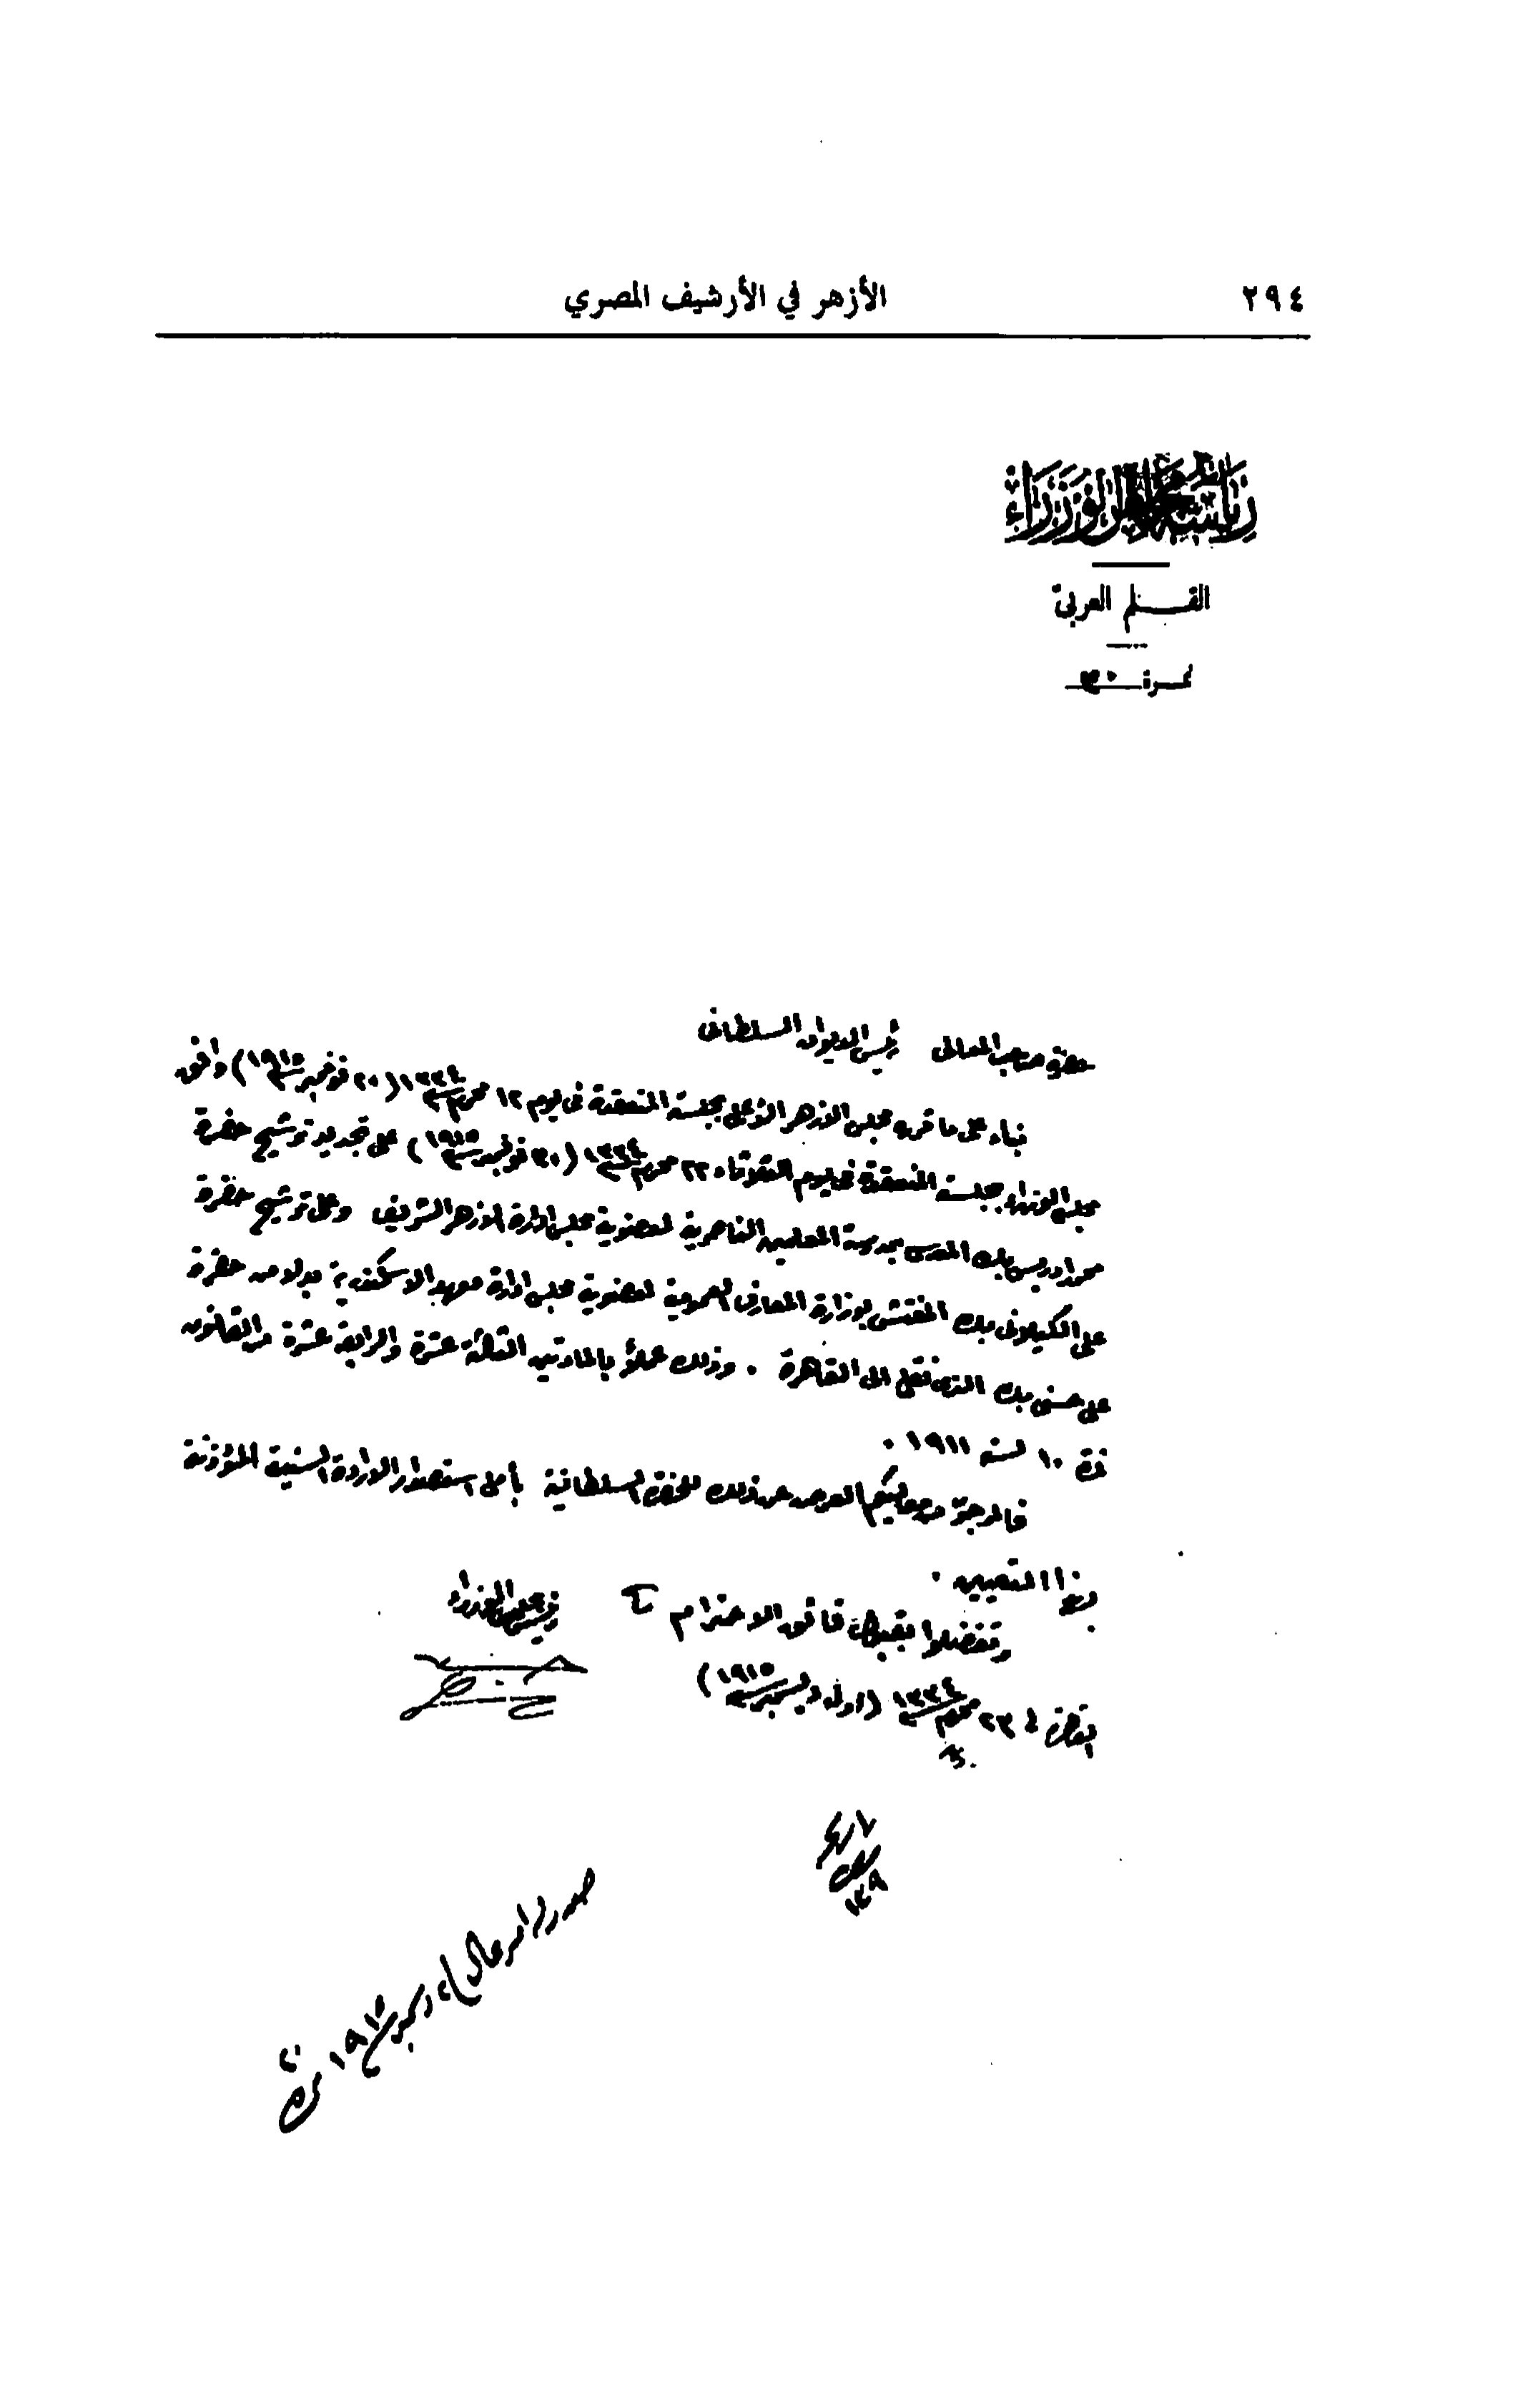 ٢٩٤
الأزهر في الأرشيف المصري
رياسة مجلس الوزراء
القلم العربى
نمرة ٣٠
حضرة صاحب المعالى رئيس الديوان السلطانى
بناء على ما قرره مجلس الازهر الأعلى بجلسته المنعقدة فى يوم ١٢ محرم سنة ١٣٣٤ (٢٠ نوفمبر سنة ١٩١٥) وافق
مجلس الوزراء بجلسته المنعقدة فى يوم الثلاثاء ٢٢ محرم سنة ١٣٣٤ (٣٠ نوفمبر سنة ١٩١٥) على تجديد ترشيح حضرة
محمد ادريس بك المدرس بمدرسة المعلمين الناصرية لعضوية مجلس ادارة الازهر الشريف وعلى ترشيح حضرة
على الكيلانى بك المفتش بوزارة المعارف العمومية لعضوية مجلس ادارة معهد الاسكندرية بدلا من حضرة
على حسنى بك الذى نقل الى القاهرة . وذلك عملاً بالمادتين الثالثة عشرة والرابعة عشرة من القانون
نمرة ١٠ لسنة ١٩١١ .
فالمرجو من معاليكم العرض عن ذلك للحضرة السلطانية بأمل استصدار الارادة السنية المؤذنة
بهذا التعيين .
وتفضلوا بقبول فائق الاحترام
رئيس مجلس الوزراء
القاهرة فى ٢٣ محرم سنة ١٣٣٤ (اول ديسمبر سنة ١٩١٥)
١٣٩
صدر امر عال فى ديسمبر سنة ١٩١٥